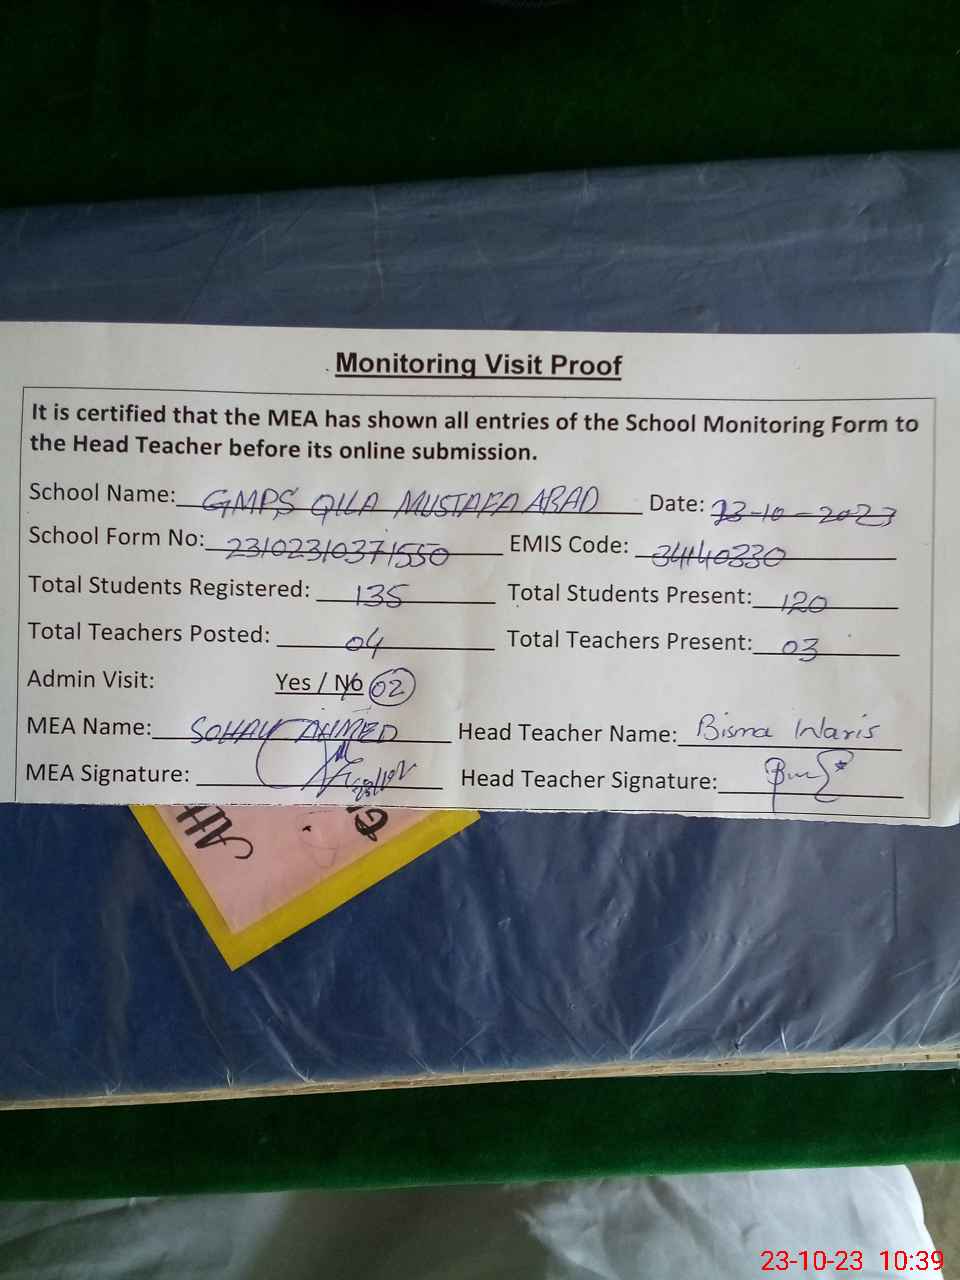 Monitoring Visit Proof
It is certified that the MEA has shown all entries of the School Monitoring Form to
the Head Teacher before its online submission.
School Name: GMPS QILA MUSTAFA ABAD Date: 23-10-2023
School Form No: 23102310371550 EMIS Code: 34140330
Total Students Registered: 135 Total Students Present: 120
Total Teachers Posted: 04 Total Teachers Present: 03
Admin Visit: Yes / No 02
MEA Name: SOHAIL AHMED Head Teacher Name: Bisma Waris
MEA Signature: Head Teacher Signature:
23-10-23 10:39